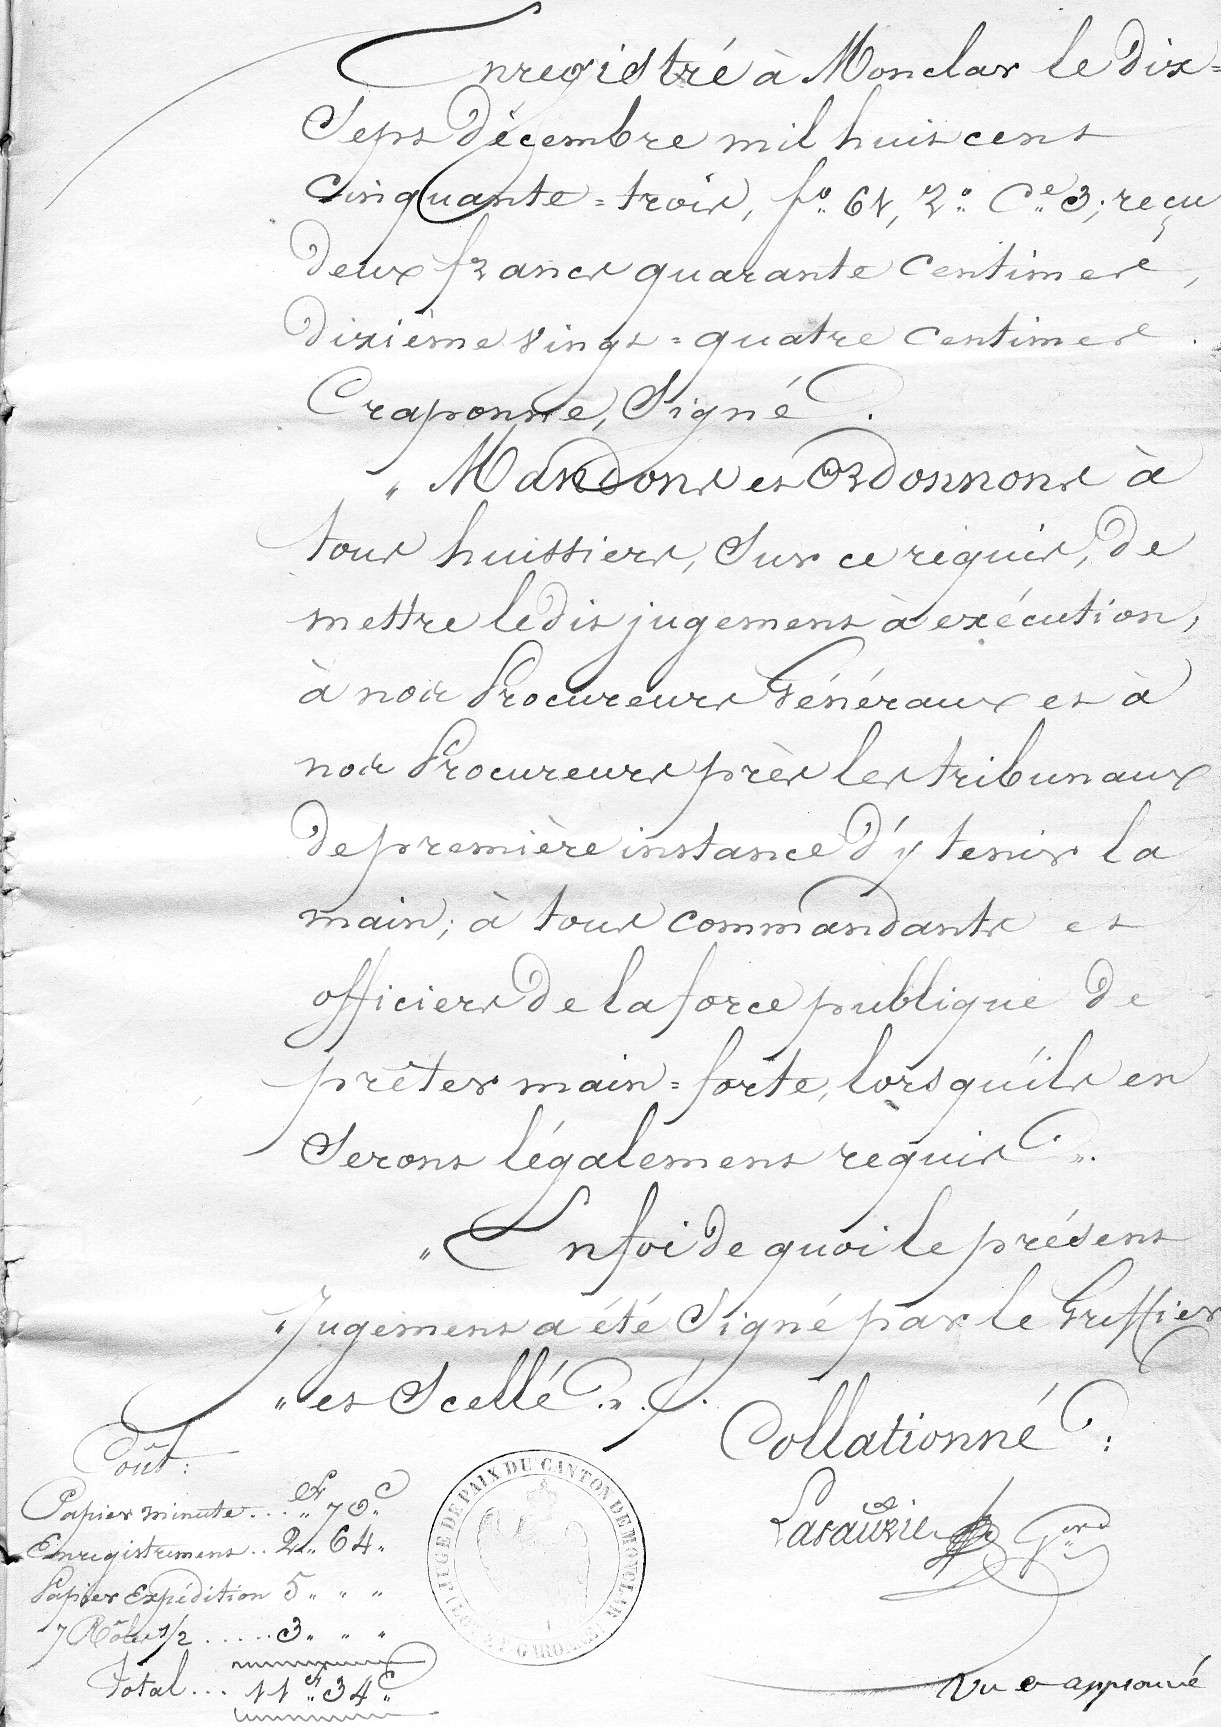 Enregistré à Monclar le dix=
Sept décembre mil huit cent
Cinquante=trois, f.º 61, 2.º C.e 3; reçu
deux francs quarante Centimes,
dixième vingt=quatre Centimes.
Craponne, Signé.
„ Mandons et Ordonnons à
tous huissiers, Sur ce requis, de
mettre ledit jugement à exécution,
à nos Procureurs Généraux et à
nos Procureurs près les tribunaux
de première instance d'y tenir la
main; à tous commandants et
officiers de la force publique de
prêter main=forte, lorsqu'ils en
Seront légalement requis „.
„ En foi de quoi le présent
„ Jugement a été Signé par le Greffier
„ et Scellé „.
Collationné :
Coût :
Papier minute... „ f 70 c
Enregistrement.. 2 „ 64 „
Papier Expédition 5 „ „ „
7 Rôles 1/2 ..... 3 „ „ „
Total... 11 f 34 c
JUGE DE PAIX DU CANTON DE MONCLAR (LOT ET GARONNE)
Vu et approuvé